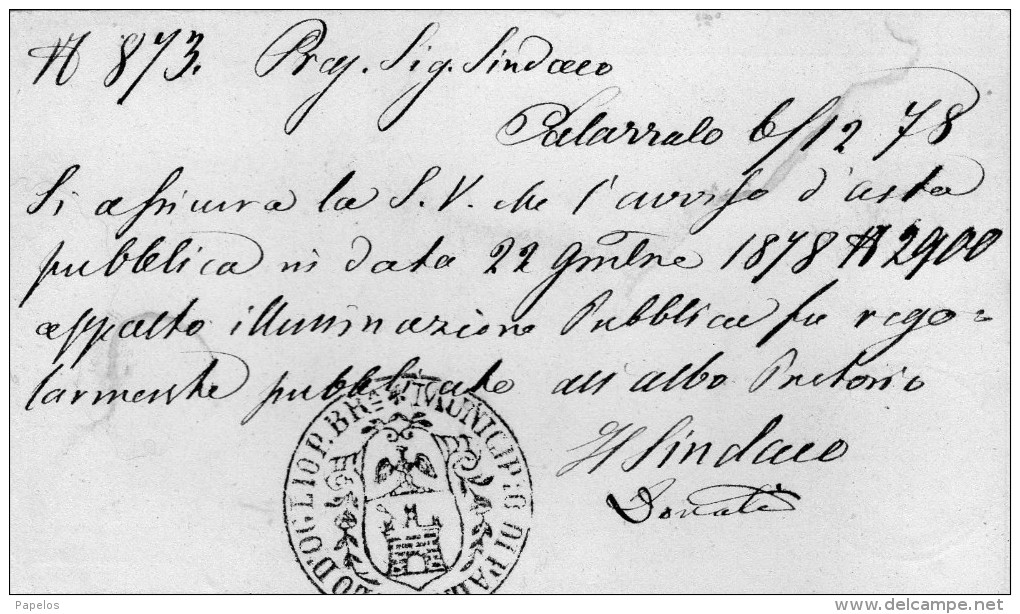 N 873. Preg. Sig. Sindaco
Palazzolo 6/12 78
Si assicura la S. V. che l'avviso d'asta
pubblica in data 22 9mbre 1878 N 2900
appalto illuminazione Pubblica fu rego=
larmente pubblicato all'albo Pretorio
Il Sindaco
Donati
MUNICIPIO DI PAL
ZO D'OGLIO P. BRna
Papelos
www.delcampe.net